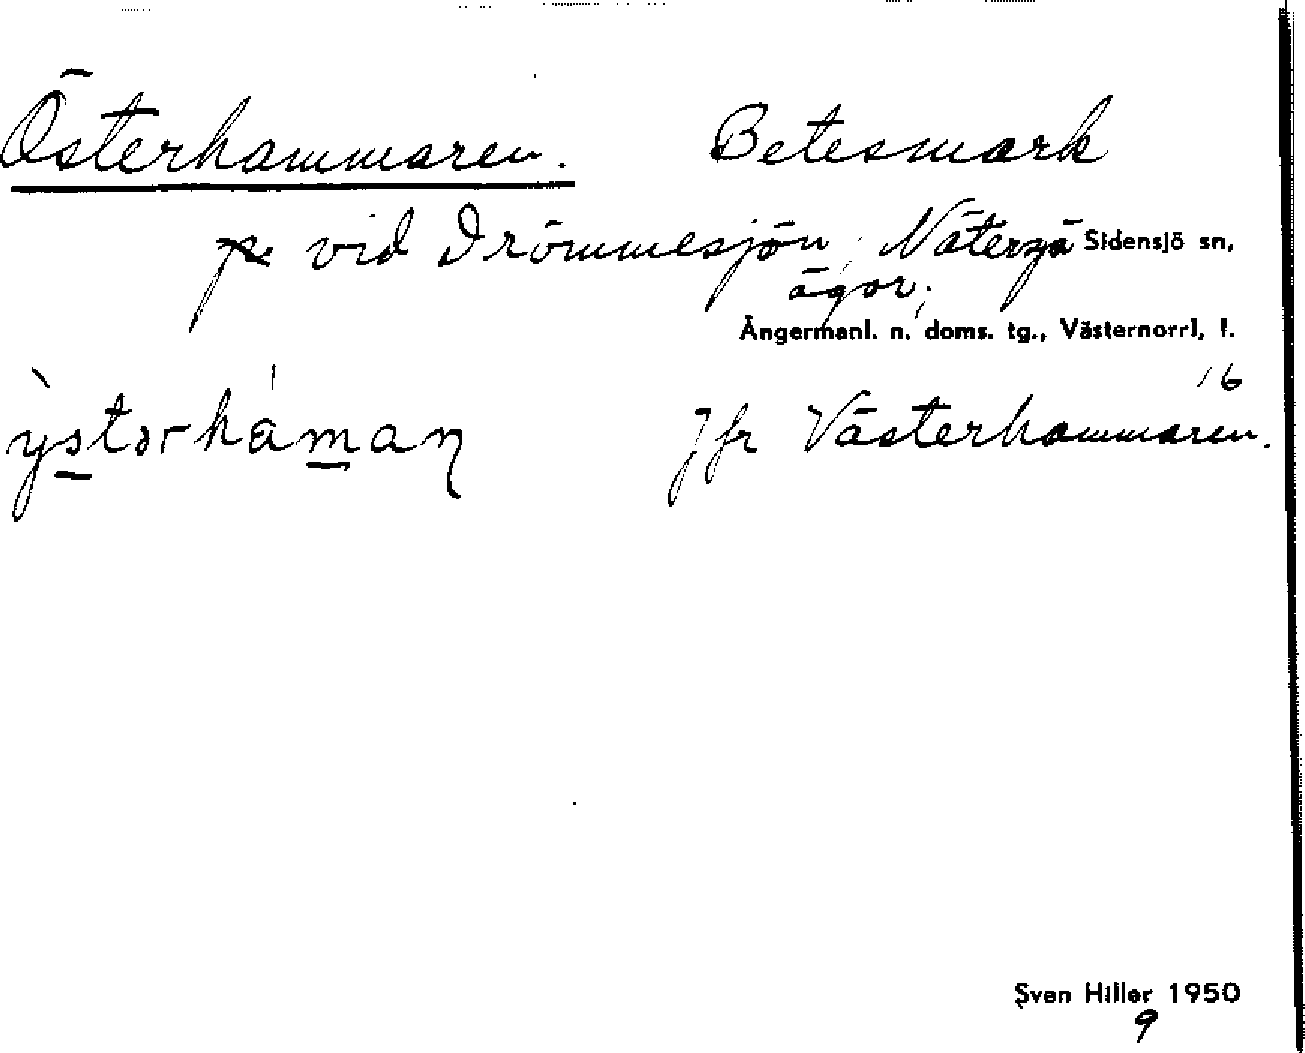 Österhammaren. Betesmark
på vid Drömmesjön, Nätersjö Sidensjö sn,
ägor;
Ångermanl. n. doms. tg., Västernorrl. l.
16
ỳstərháman Jfr Västerhammaren.
Sven Hiller 1950
9